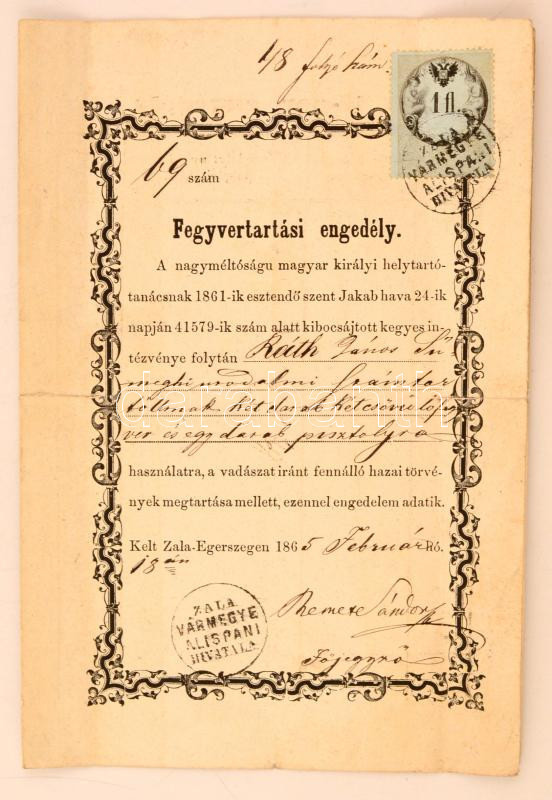 1/8 folyó szám.
1 fl.
ZALA
VARMEGYE
ALISPANI
HIVATALA
69 szám
Fegyvertartási engedély.
A nagyméltóságu magyar királyi helytartó-
tanácsnak 1861-ik esztendő szent Jakab hava 24-ik
napján 41579-ik szám alatt kibocsájtott kegyes in-
tézvénye folytán Ráth János Sü
meghi uradalmi számtar
tóknak két darab kétcsövű
ver és egy darab pisztolyra
használatra, a vadászat iránt fennálló hazai törvé-
nyek megtartása mellett, ezennel engedelem adatik.
Kelt Zala-Egerszegen 1865 Február hó.
18án
ZALA
VARMEGYE
ALISPANI
HIVATALA
Remete Sándor
Főjegyző
darabanth